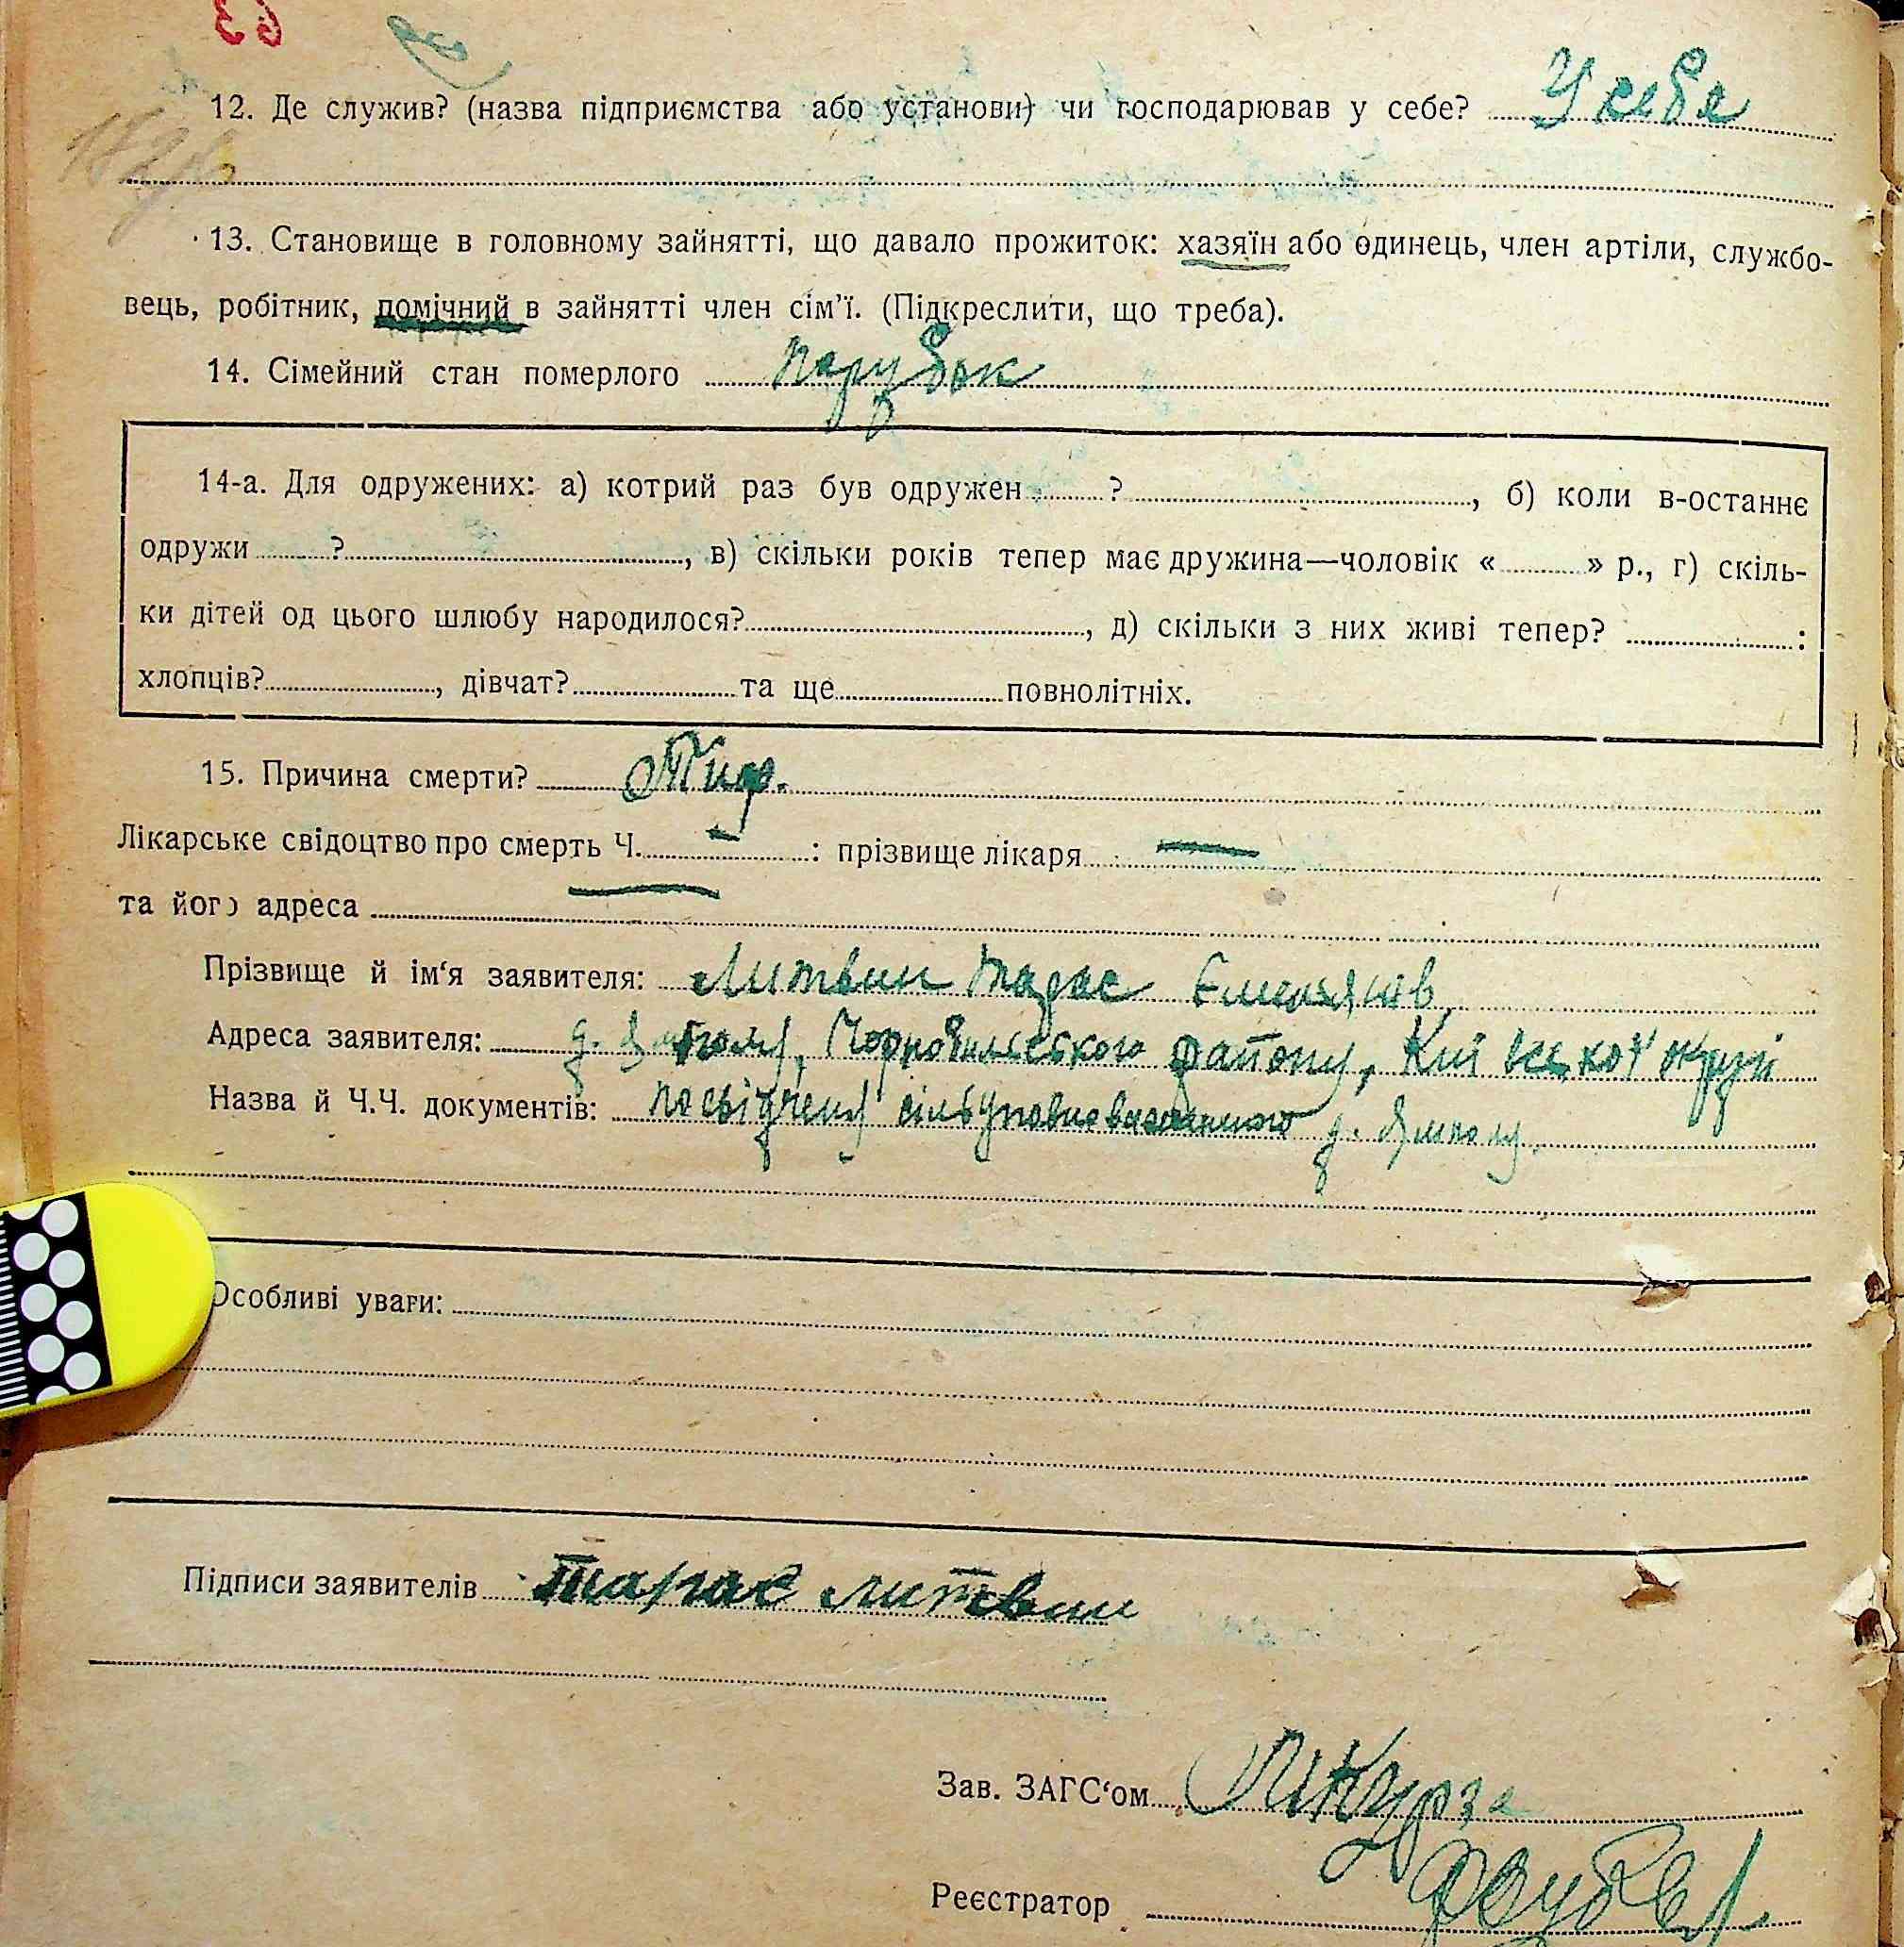 12. Де служив? (назва підприємства або установи) чи господарював у себе? У себе
13. Становище в головному зайнятті, що давало прожиток: хазяїн або одинець, член артіли, службо-
вець, робітник, помічний в зайнятті член сім'ї. (Підкреслити, що треба).
14. Сімейний стан померлого парубок
14-а. Для одружених: а) котрий раз був одружен ? , б) коли в-останнє
одружи ? , в) скільки років тепер має дружина—чоловік « » р., г) скіль-
ки дітей од цього шлюбу народилося? , д) скільки з них живі тепер? :
хлопців? , дівчат? та ще повнолітніх.
15. Причина смерти? Тиф.
Лікарське свідоцтво про смерть Ч. — : прізвище лікаря —
та його адреса —
Прізвище й ім'я заявителя: Литвин Тарас Емельянів
Адреса заявителя: д. Ямполь, Чорнобильського району, Київської округи
Назва й Ч.Ч. документів: посвідченя сільуповноваженого д. Ямполу.
Особливі уваги:
Підписи заявителів Тарас литвин
Зав. ЗАГС'ом
Реєстратор